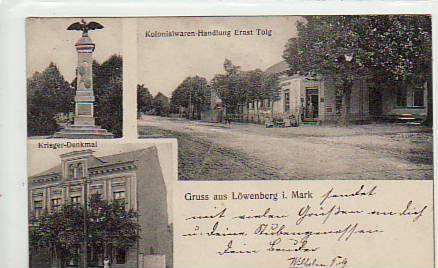 Kolonialwaren-Handlung Ernst Tolg
Krieger-Denkmal
Gruss aus Löwenberg i. Mark sendet
mit vielen Grüßen an dich
u. deine Stubengenossen
dein Bruder
Wilhelm